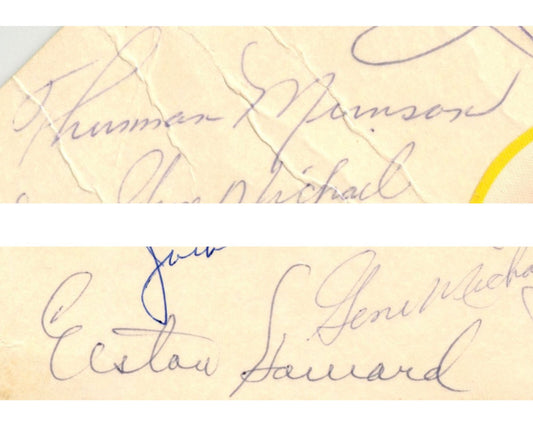 Thurman Munson
Gene Michael
Gene Michael
Elston Howard